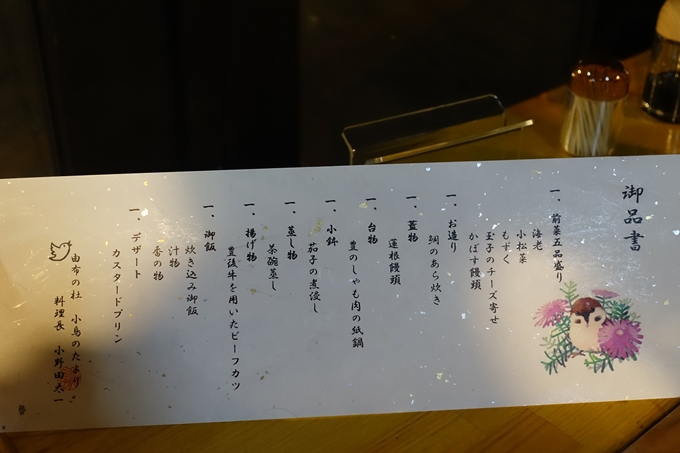 御品書
一、前菜五品盛り
海老
小松菜
もずく
玉子のチーズ寄せ
かぼす饅頭
一、お造り
鯛のあら炊き
一、蓋物
蓮根饅頭
一、台物
豊のしゃも肉の紙鍋
一、小鉢
茄子の煮浸し
一、蒸し物
茶碗蒸し
一、揚げ物
豊後牛を用いたビーフカツ
一、御飯
炊き込み御飯
汁物
香の物
一、デザート
カスタードプリン
由布の杜 小鳥のたより
料理長 小野田太一